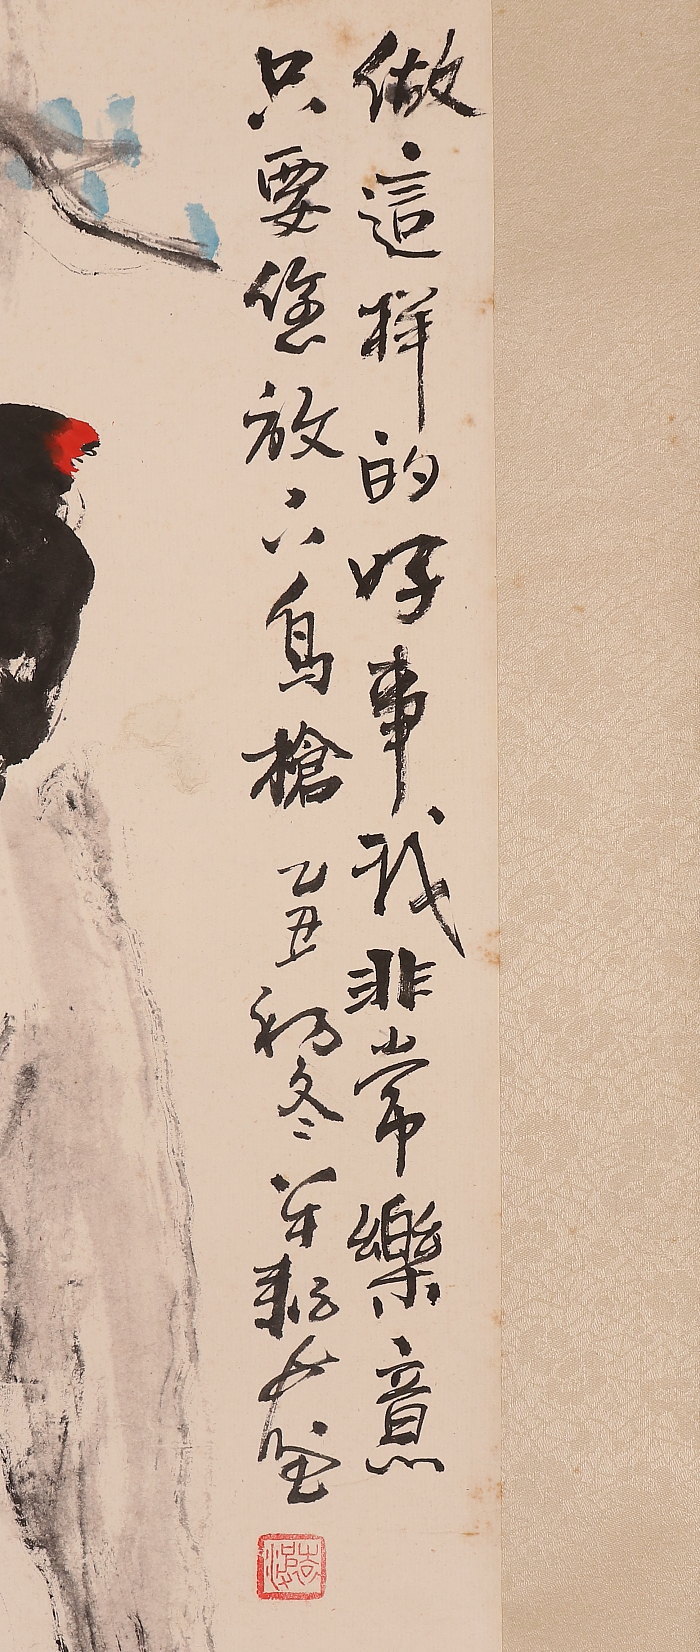 做這样的好事我非常樂意
只要您放下鳥槍 乙丑初冬